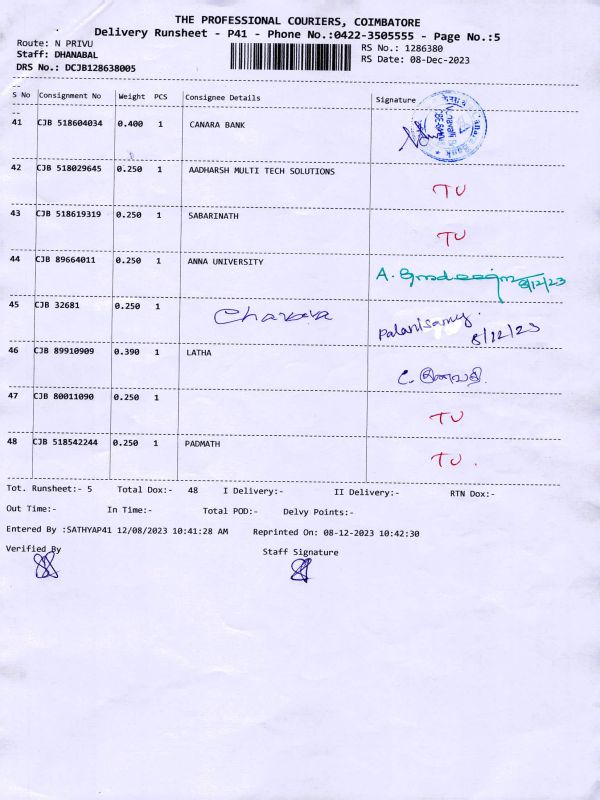 THE PROFESSIONAL COURIERS, COIMBATORE
Delivery Runsheet - P41 - Phone No.:0422-3505555 - Page No.:5
Route: N PRIVU
RS No.: 1286380
Staff: DHANABAL
RS Date: 08-Dec-2023
DRS No.: DCJB128638005
S No Consignment No Weight PCS Consignee Details Signature
41 CJB 518604034 0.400 1 CANARA BANK
42 CJB 518029645 0.250 1 AADHARSH MULTI TECH SOLUTIONS TU
43 CJB 518619319 0.250 1 SABARINATH TU
44 CJB 89664011 0.250 1 ANNA UNIVERSITY A. 8/12/23
45 CJB 32681 0.250 1 Palanisamy. 8/12/23
46 CJB 89910909 0.390 1 LATHA
47 CJB 80011090 0.250 1 TU
48 CJB 518542244 0.250 1 PADMATH TU.
Tot. Runsheet:- 5 Total Dox:- 48 I Delivery:- II Delivery:- RTN Dox:-
Out Time:- In Time:- Total POD:- Delvy Points:-
Entered By :SATHYAP41 12/08/2023 10:41:28 AM Reprinted On: 08-12-2023 10:42:30
Verified By Staff Signature